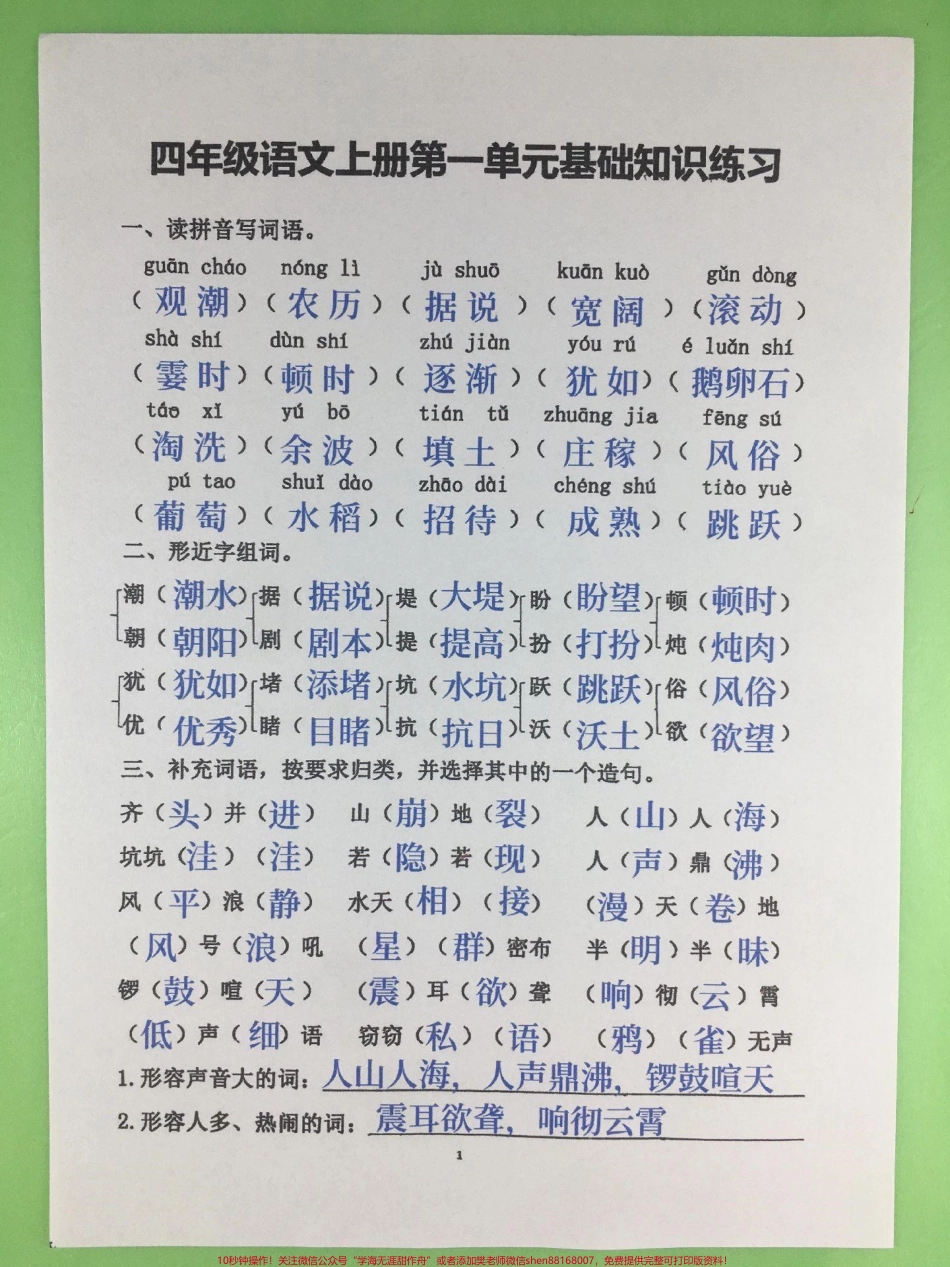 四年级语文上册第一单元基础知识练习
一、读拼音写词语。
guān cháo nóng lì jù shuō kuān kuò gǔn dòng
（观潮）（农历）（据说）（宽阔）（滚动）
shà shí dùn shí zhú jiàn yóu rú é luǎn shí
（霎时）（顿时）（逐渐）（犹如）（鹅卵石）
táo xǐ yú bō tián tǔ zhuāng jia fēng sú
（淘洗）（余波）（填土）（庄稼）（风俗）
pú tao shuǐ dào zhāo dài chéng shú tiào yuè
（葡萄）（水稻）（招待）（成熟）（跳跃）
二、形近字组词。
潮（潮水）据（据说）堤（大堤）盼（盼望）顿（顿时）
朝（朝阳）剧（剧本）提（提高）扮（打扮）炖（炖肉）
犹（犹如）堵（添堵）坑（水坑）跃（跳跃）俗（风俗）
优（优秀）睹（目睹）抗（抗日）沃（沃土）欲（欲望）
三、补充词语，按要求归类，并选择其中的一个造句。
齐（头）并（进） 山（崩）地（裂） 人（山）人（海）
坑坑（洼）（洼） 若（隐）若（现） 人（声）鼎（沸）
风（平）浪（静） 水天（相）（接） （漫）天（卷）地
（风）号（浪）吼 （星）（群）密布 半（明）半（昧）
锣（鼓）喧（天） （震）耳（欲）聋 （响）彻（云）霄
（低）声（细）语 窃窃（私）（语） （鸦）（雀）无声
1.形容声音大的词：人山人海，人声鼎沸，锣鼓喧天
2.形容人多、热闹的词：震耳欲聋，响彻云霄
1
10秒钟操作！关注微信公众号“学海无涯甜作舟”或者添加樊老师微信shen88168007，免费提供完整可打印版资料！